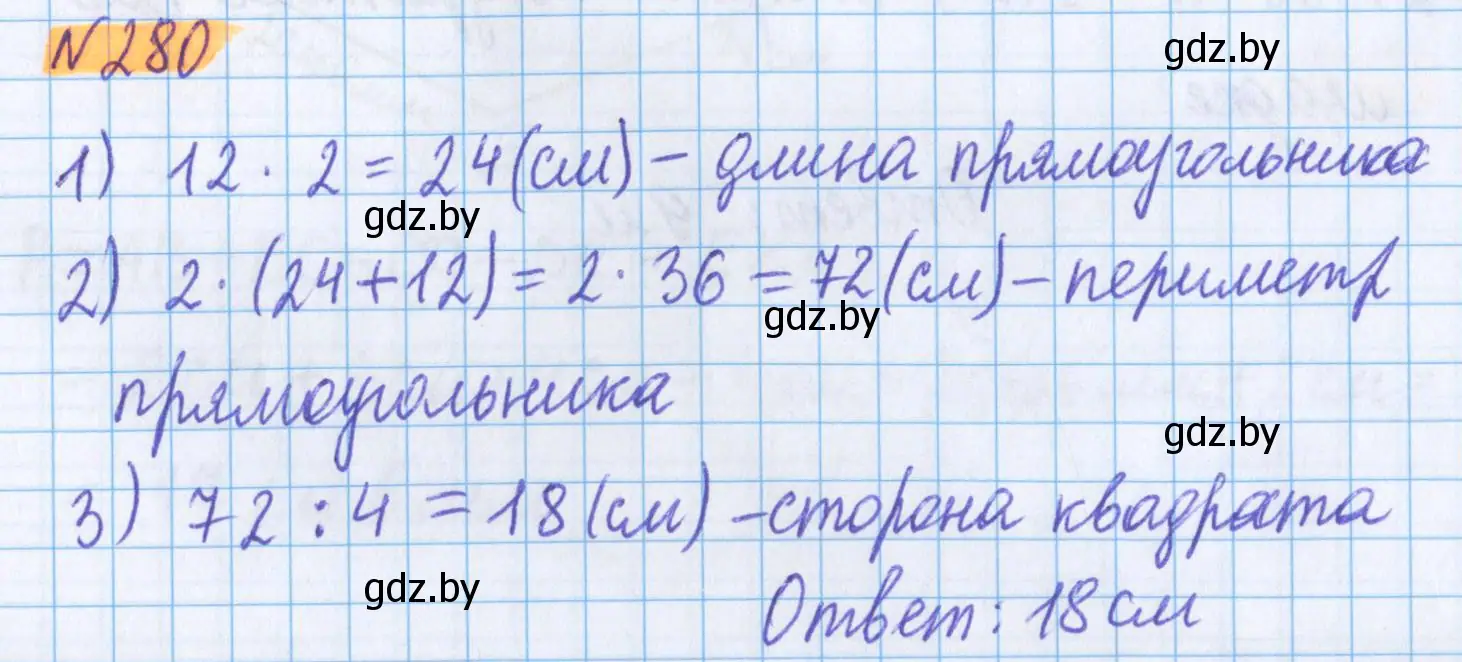 N280
gdz.by
1) 12 · 2 = 24(см) – длина прямоугольника
gdz.by
2) 2 · (24+12) = 2 · 36 = 72(см) – периметр
gdz.by
прямоугольника
gdz.by
3) 72 : 4 = 18 (см) – сторона квадрата
gdz.by
Ответ: 18 см